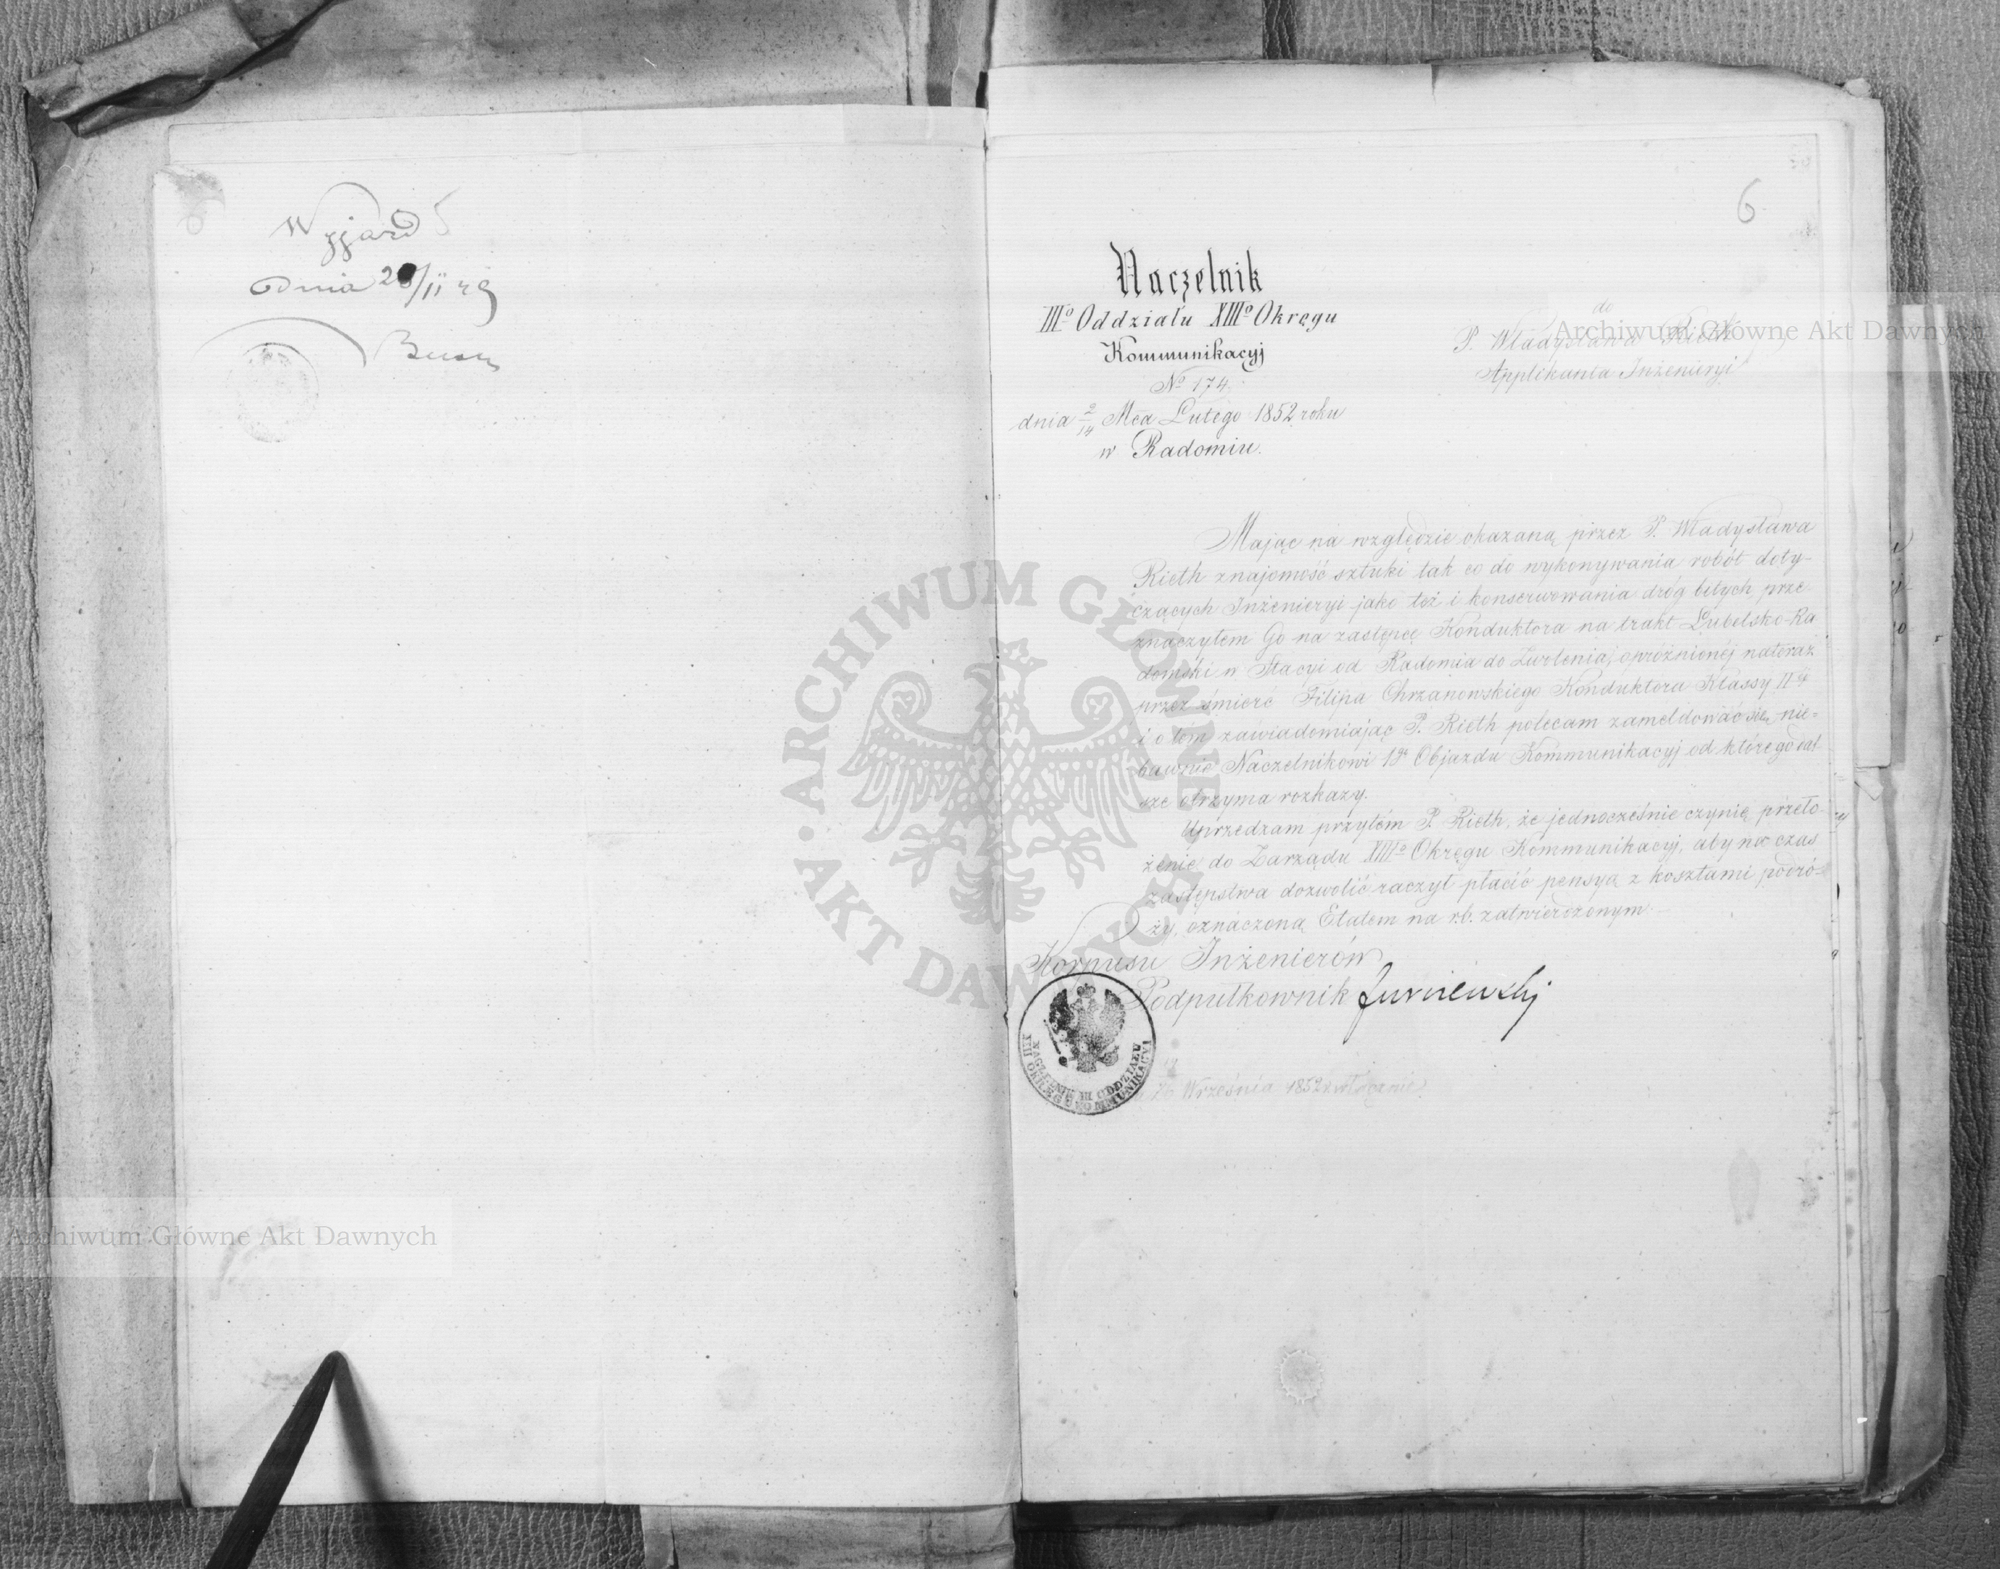 Wyjazd
dnia 28/II 49
6
Naczelnik
IIIº Oddziału XIIIº Okręgu
Kommunikacyj
Nº 174.
dnia 2/14 Mca Lutego 1852 roku
w Radomiu.
do
P. Władysława Rieth
Applikanta Inżenieryi
Mając na względzie okazaną przez P. Władysława
Rieth znajomość sztuki tak co do wykonywania robót doty-
czących Inżenieryi jako też i konserwowania dróg bitych prze
znaczyłem Go na zastępcę Konduktora na trakt Lubelsko-Ra
domski w Stacyi od Radomia do Zwolenia, opróżnionej nateraz
przez śmierć Filipa Chrzanowskiego Konduktora Klassy IIéj
i o tém zawiadomiając P. Rieth polecam zameldować się nie-
bawnie Naczelnikowi 1go Objazdu Kommunikacyj od którego dal-
sze otrzyma rozkazy.
Uprzedzam przytém P. Rieth, że jednocześnie czynię przeło-
żenie do Zarządu XIIIº Okręgu Kommunikacyj, aby na czas
zastępstwa dozwolić raczył płacić pensyą z kosztami podró-
ży, oznaczoną Etatem na r.b. zatwierdzonym
Korpusu Inżenierów
Podpułkownik
NACZELNIK III ODDZIAŁU
XIII OKRĘGU KOMMUNIKACYI
Września 1852
ARCHIWUM GŁÓWNE
AKT DAWNYCH
Archiwum Główne Akt Dawnych
Archiwum Główne Akt Dawnych